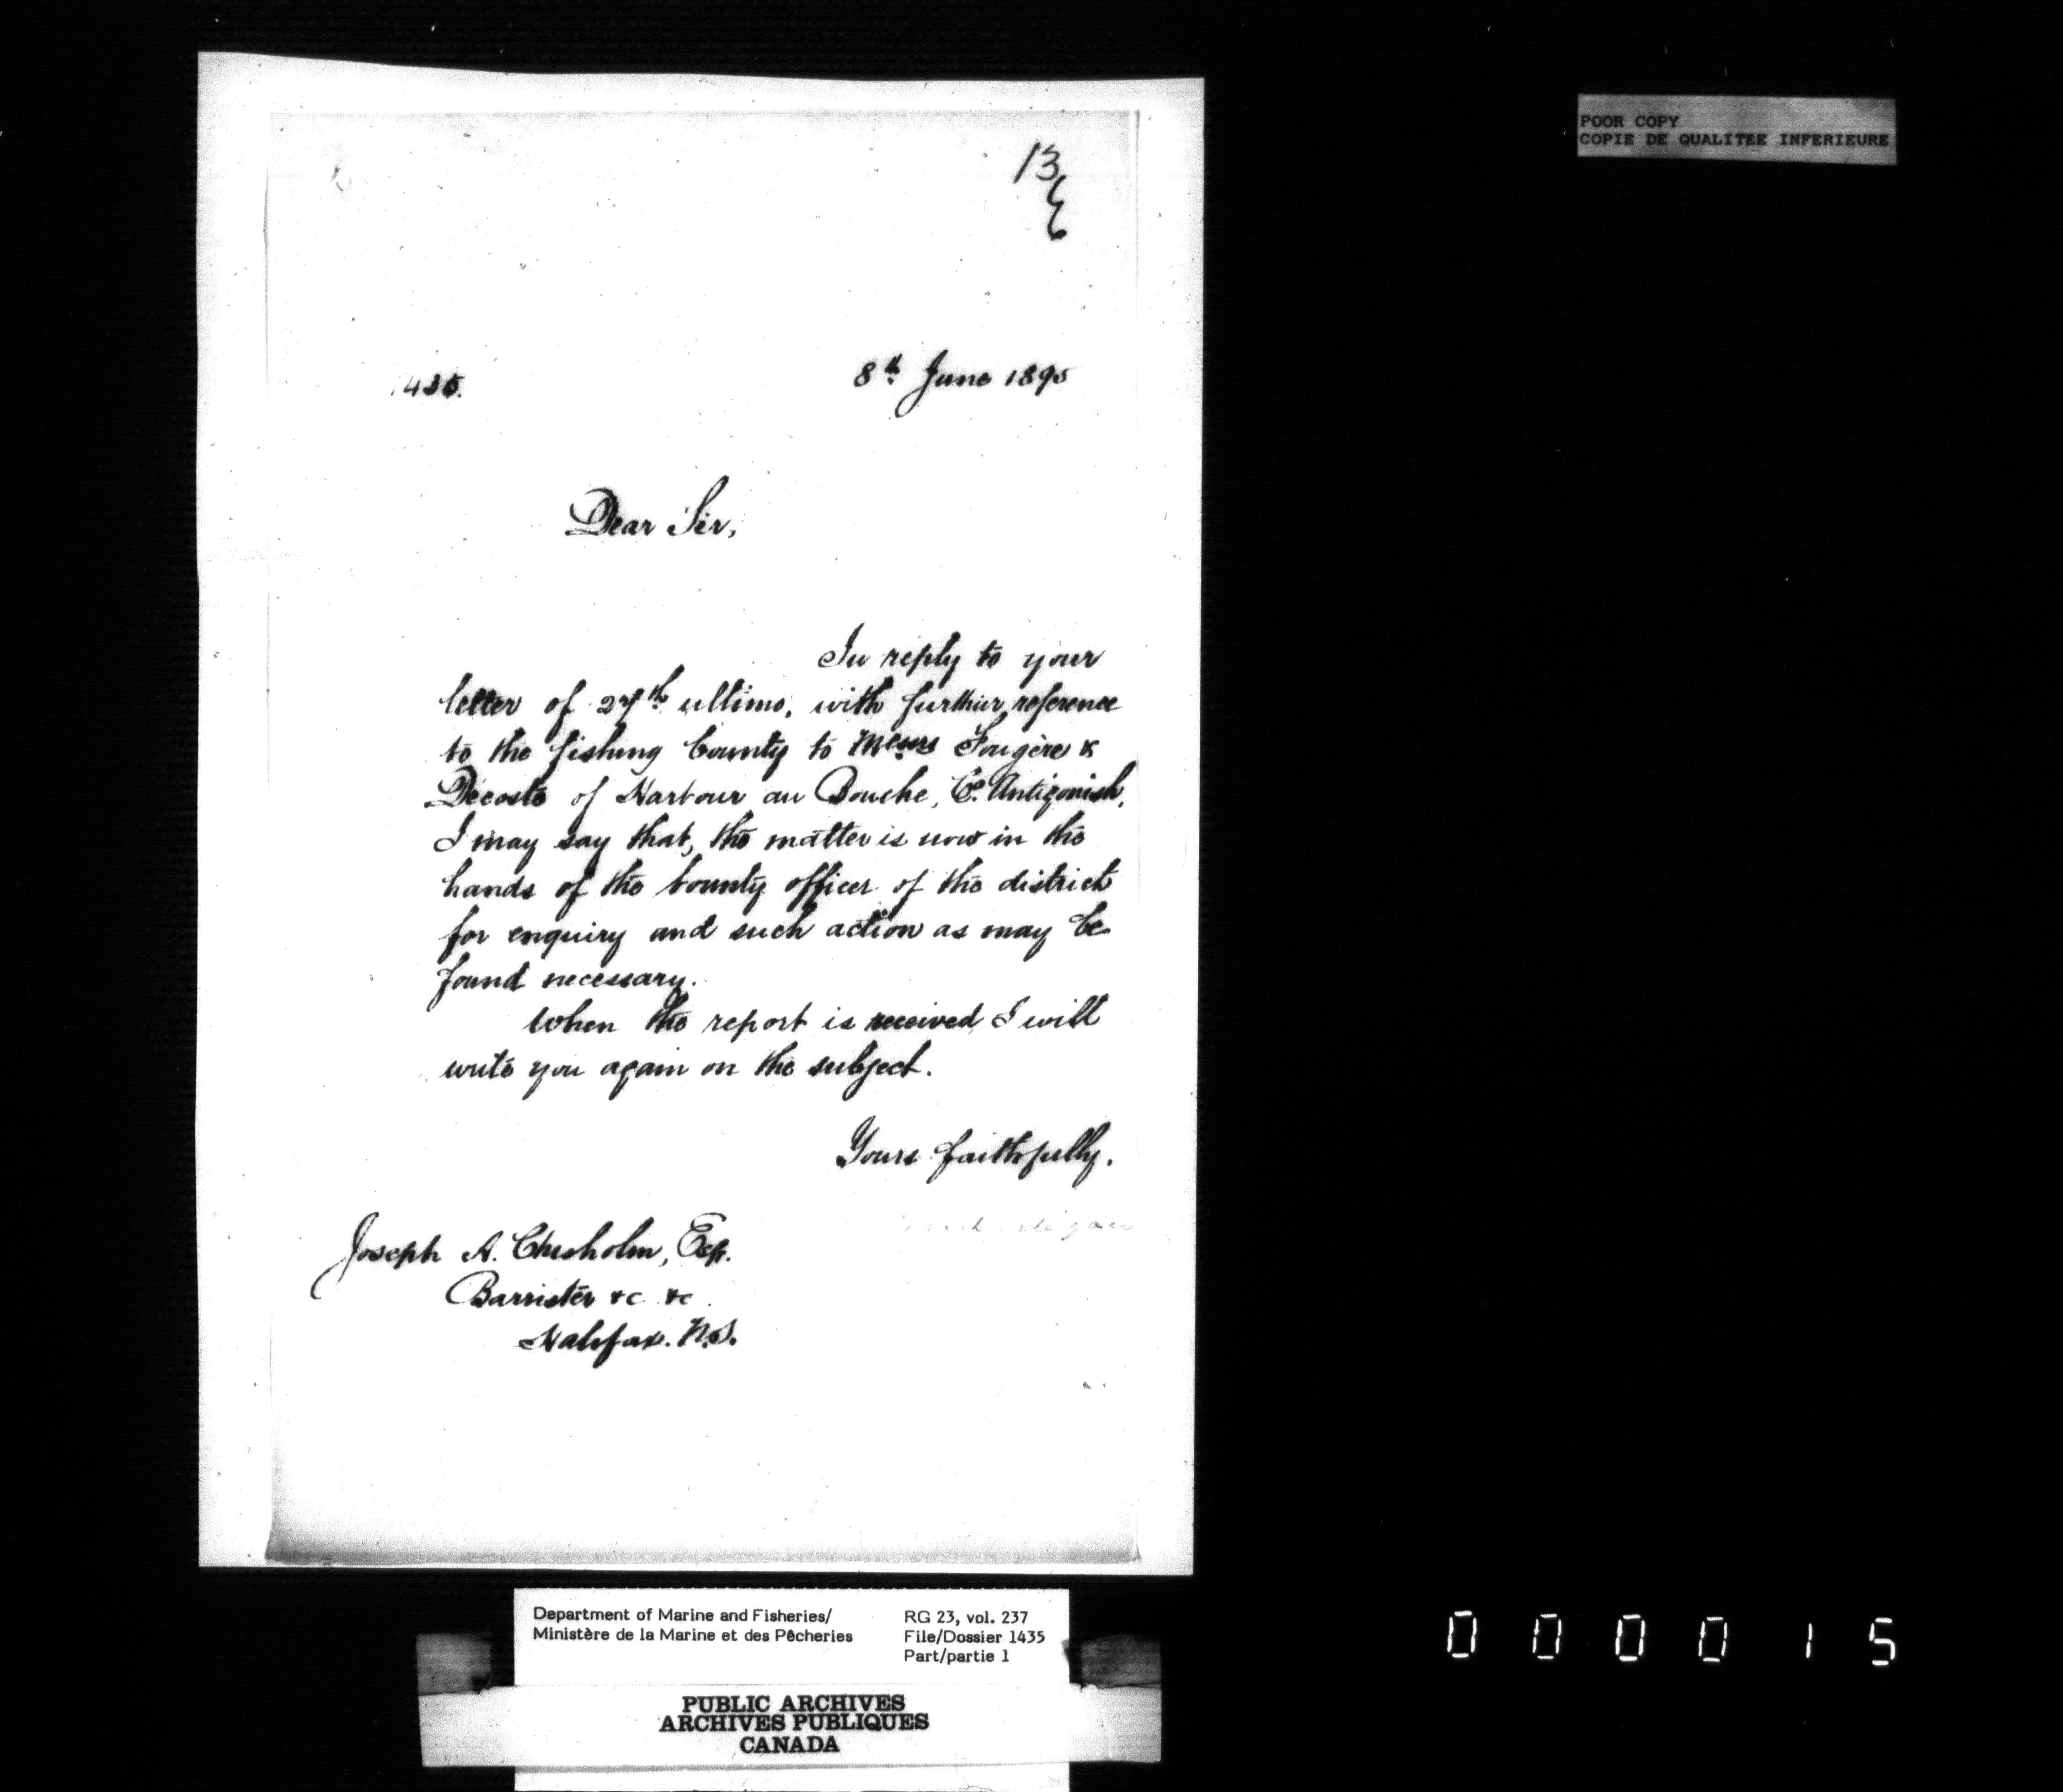 POOR COPY
COPIE DE QUALITEE INFERIEURE
13
1435.
8th June 1895
Dear Sir,
In reply to your
letter of 27th ultimo, with further reference
to the fishing bounty to Messrs Fougère &
Decoste of Harbour au Bouche, Co. Antigonish,
I may say that, the matter is now in the
hands of the bounty officer of the district
for enquiry and such action as may be
found necessary.
When the report is received I will
write you again on the subject.
Yours faithfully.
Joseph A. Chisholm, Esq.
Barrister &c &c.
Halifax. N.S.
Department of Marine and Fisheries/
Ministère de la Marine et des Pêcheries
RG 23, vol. 237
File/Dossier 1435
Part/partie 1
PUBLIC ARCHIVES
ARCHIVES PUBLIQUES
CANADA
000015